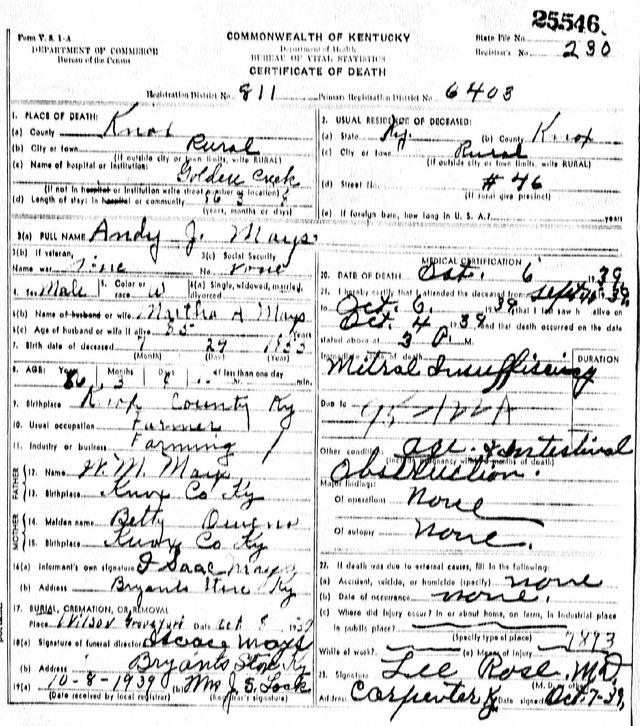 25546
Form V. S. 1-A
DEPARTMENT OF COMMERCE
Bureau of the Census
COMMONWEALTH OF KENTUCKY
Department of Health
BUREAU OF VITAL STATISTICS
CERTIFICATE OF DEATH
State File No.
Registrar's No. 230
Registration District No. 811 Primary Registration District No. 6403
1. PLACE OF DEATH:
(a) County Knox
(b) City or town Rural
(If outside city or town limits, write RURAL)
(c) Name of hospital or institution:
Golden Creek
(If not in hospital or institution write street number or location)
(d) Length of stay: In hospital or community 86 3
(years, months or days)
2. USUAL RESIDENCE OF DECEASED:
(a) State Ky. (b) County Knox
(c) City or town Rural
(If outside city or town limits, write RURAL)
(d) Street No. # 46
(If rural give precinct)
(e) If foreign born, how long in U. S. A.? years
3(a) FULL NAME Andy J. Mays.
3(b) If veteran, 3(c) Social Security
Name war No. none
4. Sex Male 5. Color or race W 6(a) Single, widowed, married, divorced
6(b) Name of husband or wife Martha A Mays
6(c) Age of husband or wife if alive 85 Years
7. Birth date of deceased 7 29 1853
(Month) (Day) (Year)
8. AGE: Years Months Days If less than one day
86 3 hr. min.
9. Birthplace Knox County Ky
10. Usual occupation Farmer
11. Industry or business Farming
FATHER
12. Name W. M. Mays
13. Birthplace Knox Co Ky
MOTHER
14. Maiden name Betty Owens
15. Birthplace Knox Co Ky
16(a) Informant's own signature Isaac Mays
(b) Address Bryants Store Ky
17. BURIAL, CREMATION, OR REMOVAL
Place Wilson Graveyard Date Oct 8, 1939
18(a) Signature of funeral director Isaac Mays
(b) Address Bryants Store Ky
19(a) 10-8-1939 (b) Mrs J. S. Lock
(Date received by local registrar) (Registrar's signature)
MEDICAL CERTIFICATION
20. DATE OF DEATH Oct. 6, 1939
21. I hereby certify that I attended the deceased from Sept
to Oct. 6, 1939, that I last saw h alive on
Oct. 4 1939 and that death occurred on the date
stated above at 3 P. M.
Immediate cause of death DURATION
Mitral Insufficiency
Due to
Other conditions age & Intestinal
Obstruction.
Major findings:
Of operations None
Of autopsy None.
22. If death was due to external causes, fill in the following:
(a) Accident, suicide, or homicide (specify) none
(b) Date of occurrence none.
(c) Where did injury occur? In or about home, on farm, in industrial place
in public place?
(Specify type of place)
While at work? (e) Means of injury 7893
23. Signature Lee Rose, MD.
Address Carpenter Ky Date signed Oct-7-39,